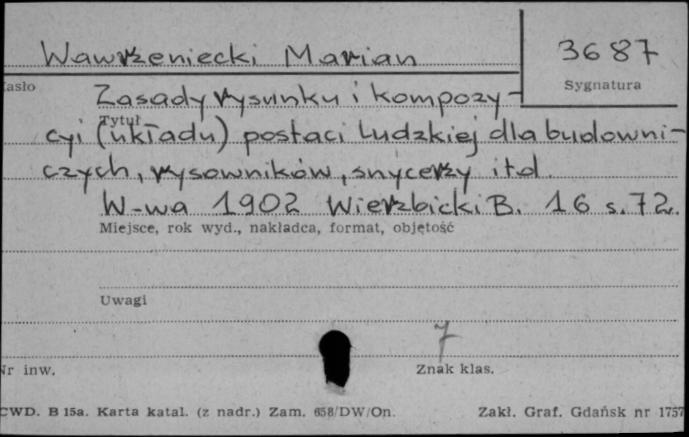 Wawrzeniecki Marian
3687
asło
Sygnatura
Zasady rysunku i kompozy-
Tytuł
cyi (układu) postaci ludzkiej dla budowni-
czych, rysowników, snycerzy itd.
W-wa 1902 Wierzbicki B. 16 s. 72.
Miejsce, rok wyd., nakładca, format, objętość
Uwagi
7
Nr inw.
Znak klas.
CWD. B 15a. Karta katal. (z nadr.) Zam. 658/DW/On.
Zakł. Graf. Gdańsk nr 1757